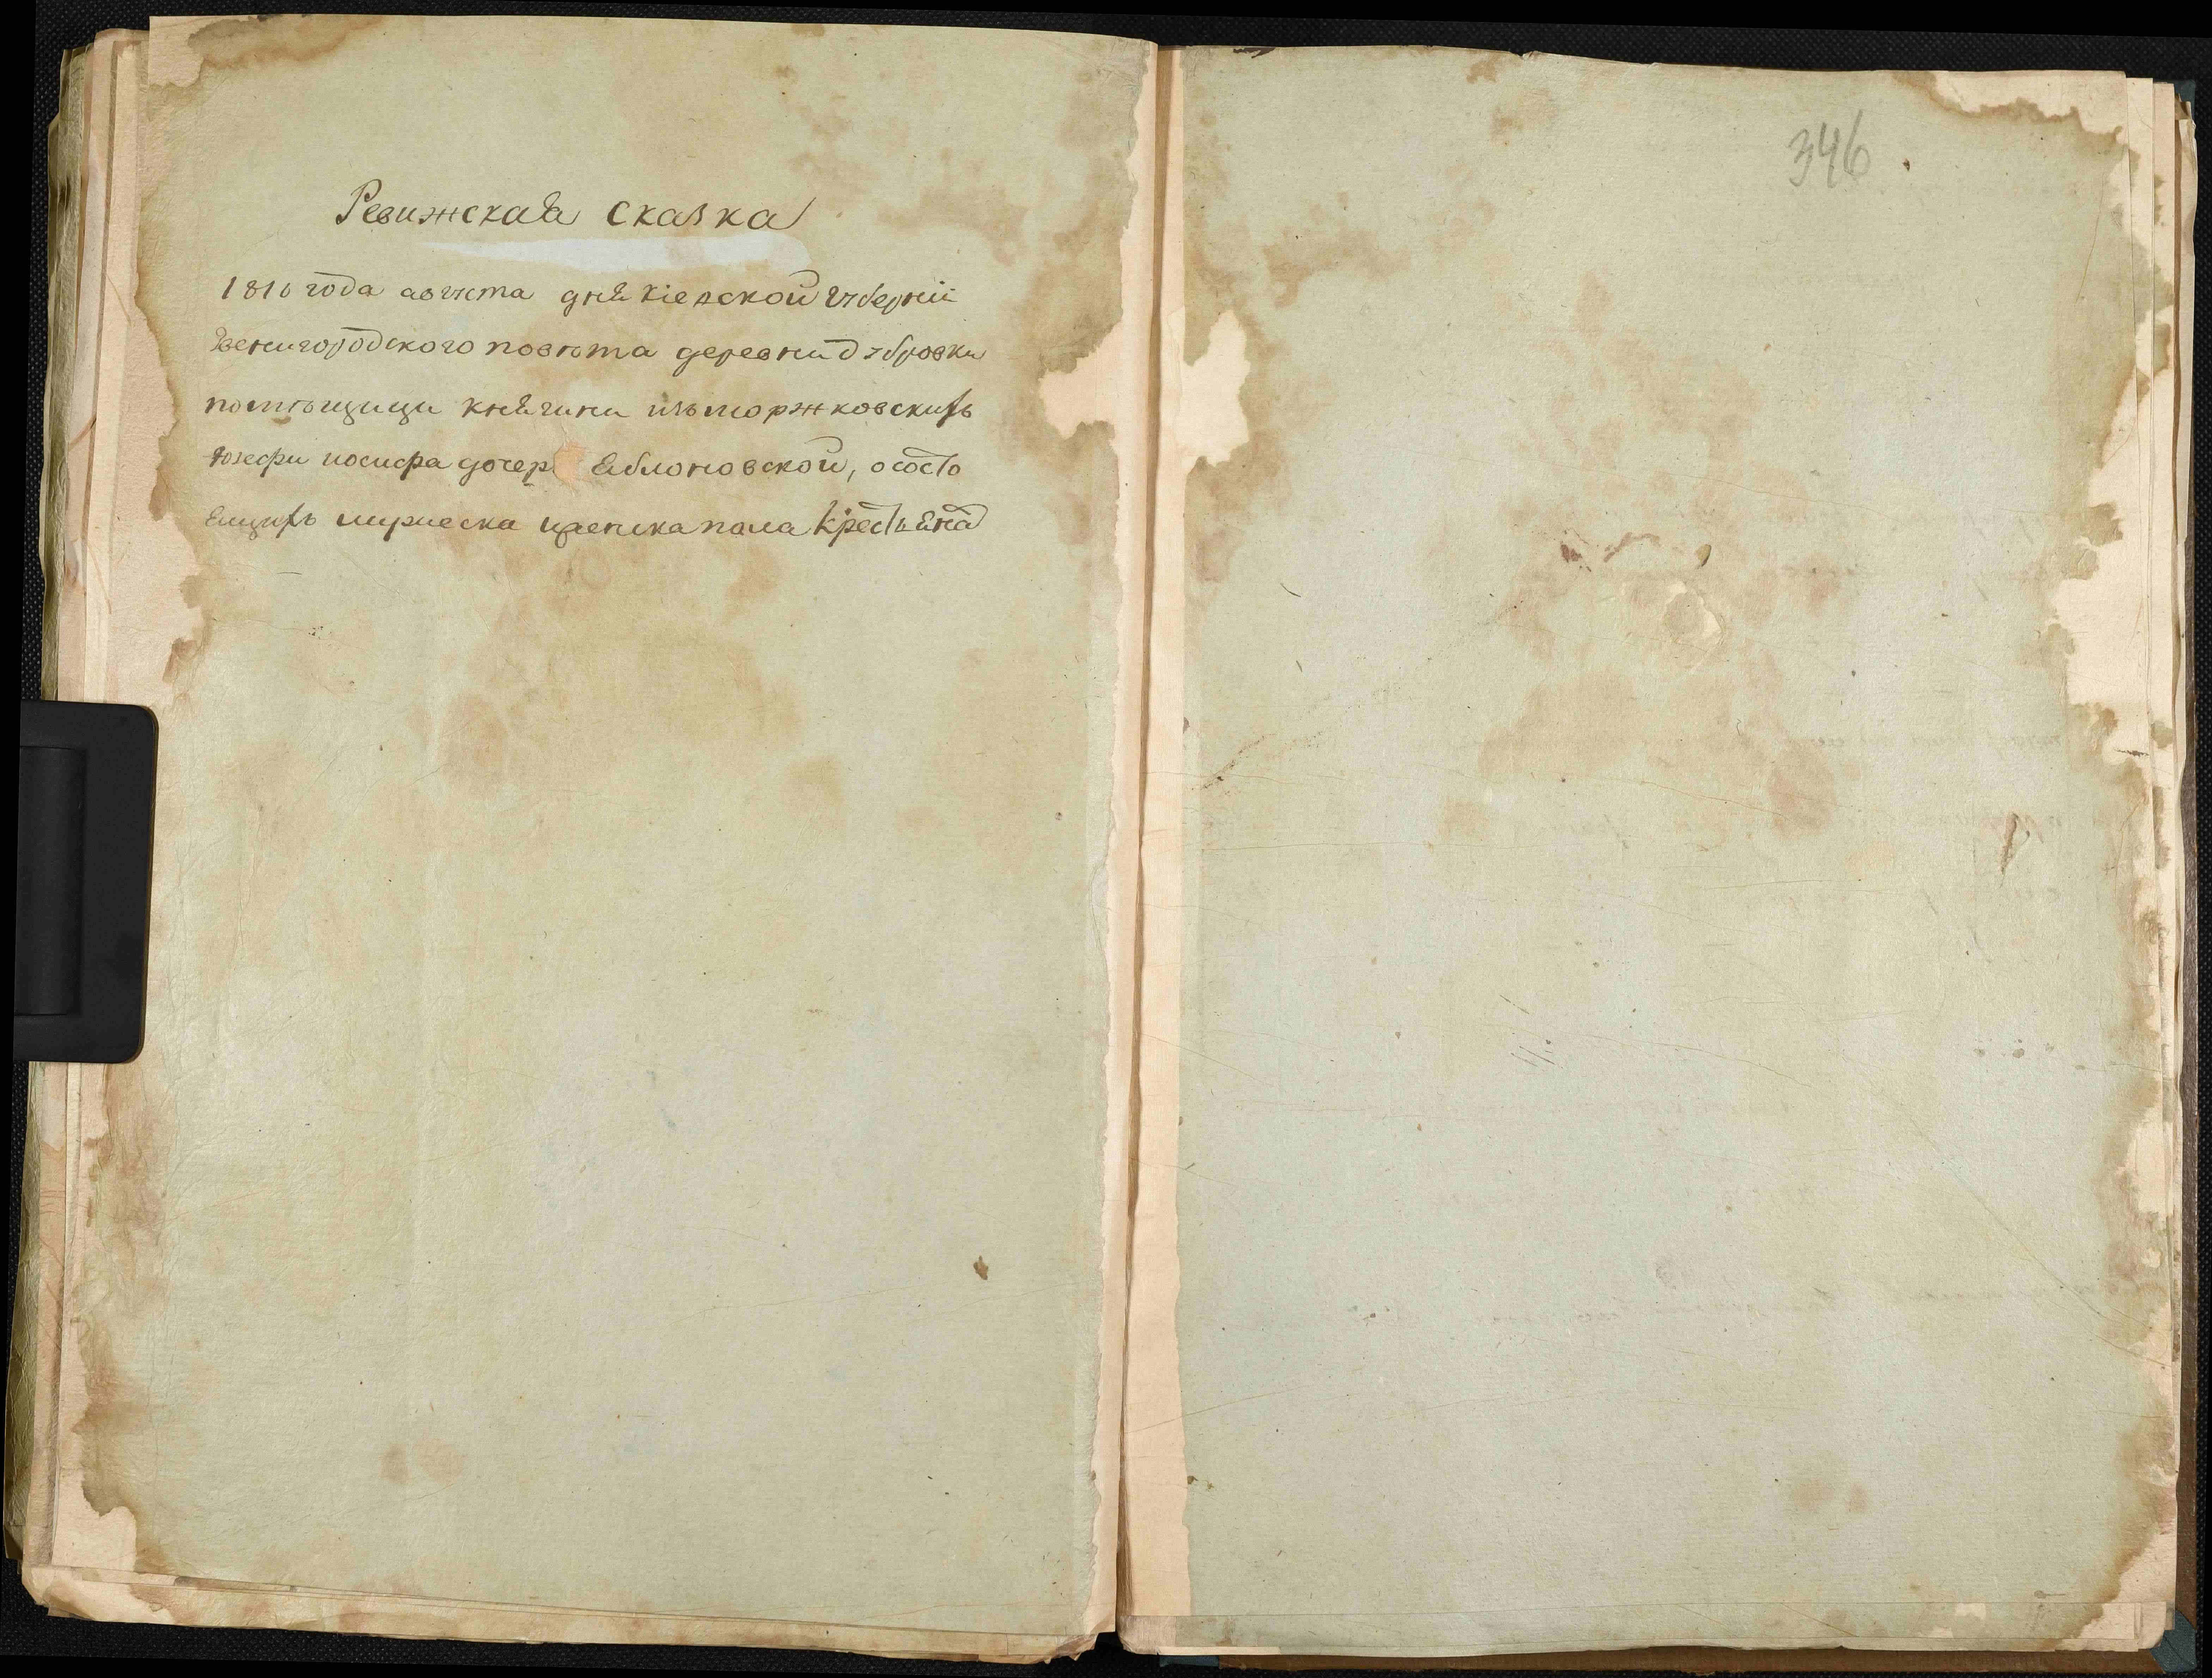 346
Ревижская сказка
1816 года августа дня кіевской губерніи
Звенигородского повѣта деревни дубровки
помѣщици княгини изъ моржковскихъ
Юзефи иосифа дочер яблоновской, о состо
ящихъ мужеска женска пола крестьяна